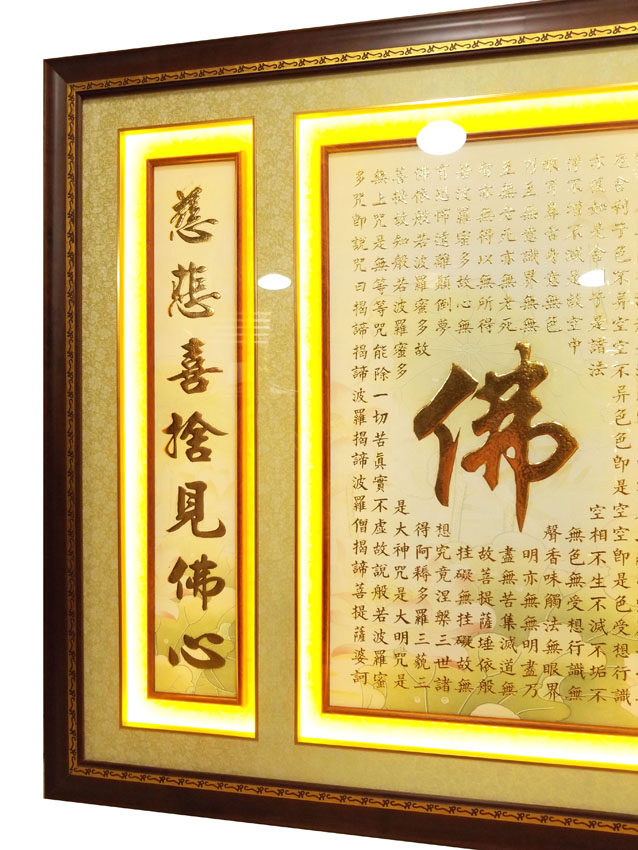 厄舍利子色不异空空不异色色卽是空空卽是色受想行識
亦復如是舍利子是諸法空相不生不滅不垢不
淨不增不減是故空中無色無受想行識無
眼耳鼻舌身意無色聲香味觸法無眼界
乃至無意識界無無明亦無無明盡乃
至無老死亦無老死盡無苦集滅道無
智亦無得以無所得故菩提薩埵依般
若波羅蜜多故心無挂礙無挂礙故無
有恐怖遠離顛倒夢想究竟涅槃三世諸
佛依般若波羅蜜多故得阿耨多羅三藐三
菩提故知般若波羅蜜多是大神咒是大明咒是
無上咒是無等等咒能除一切苦眞實不虛故說般若波羅蜜
多咒卽說咒曰揭諦揭諦波羅揭諦波羅僧揭諦菩提薩婆訶
佛
慈悲喜捨見佛心